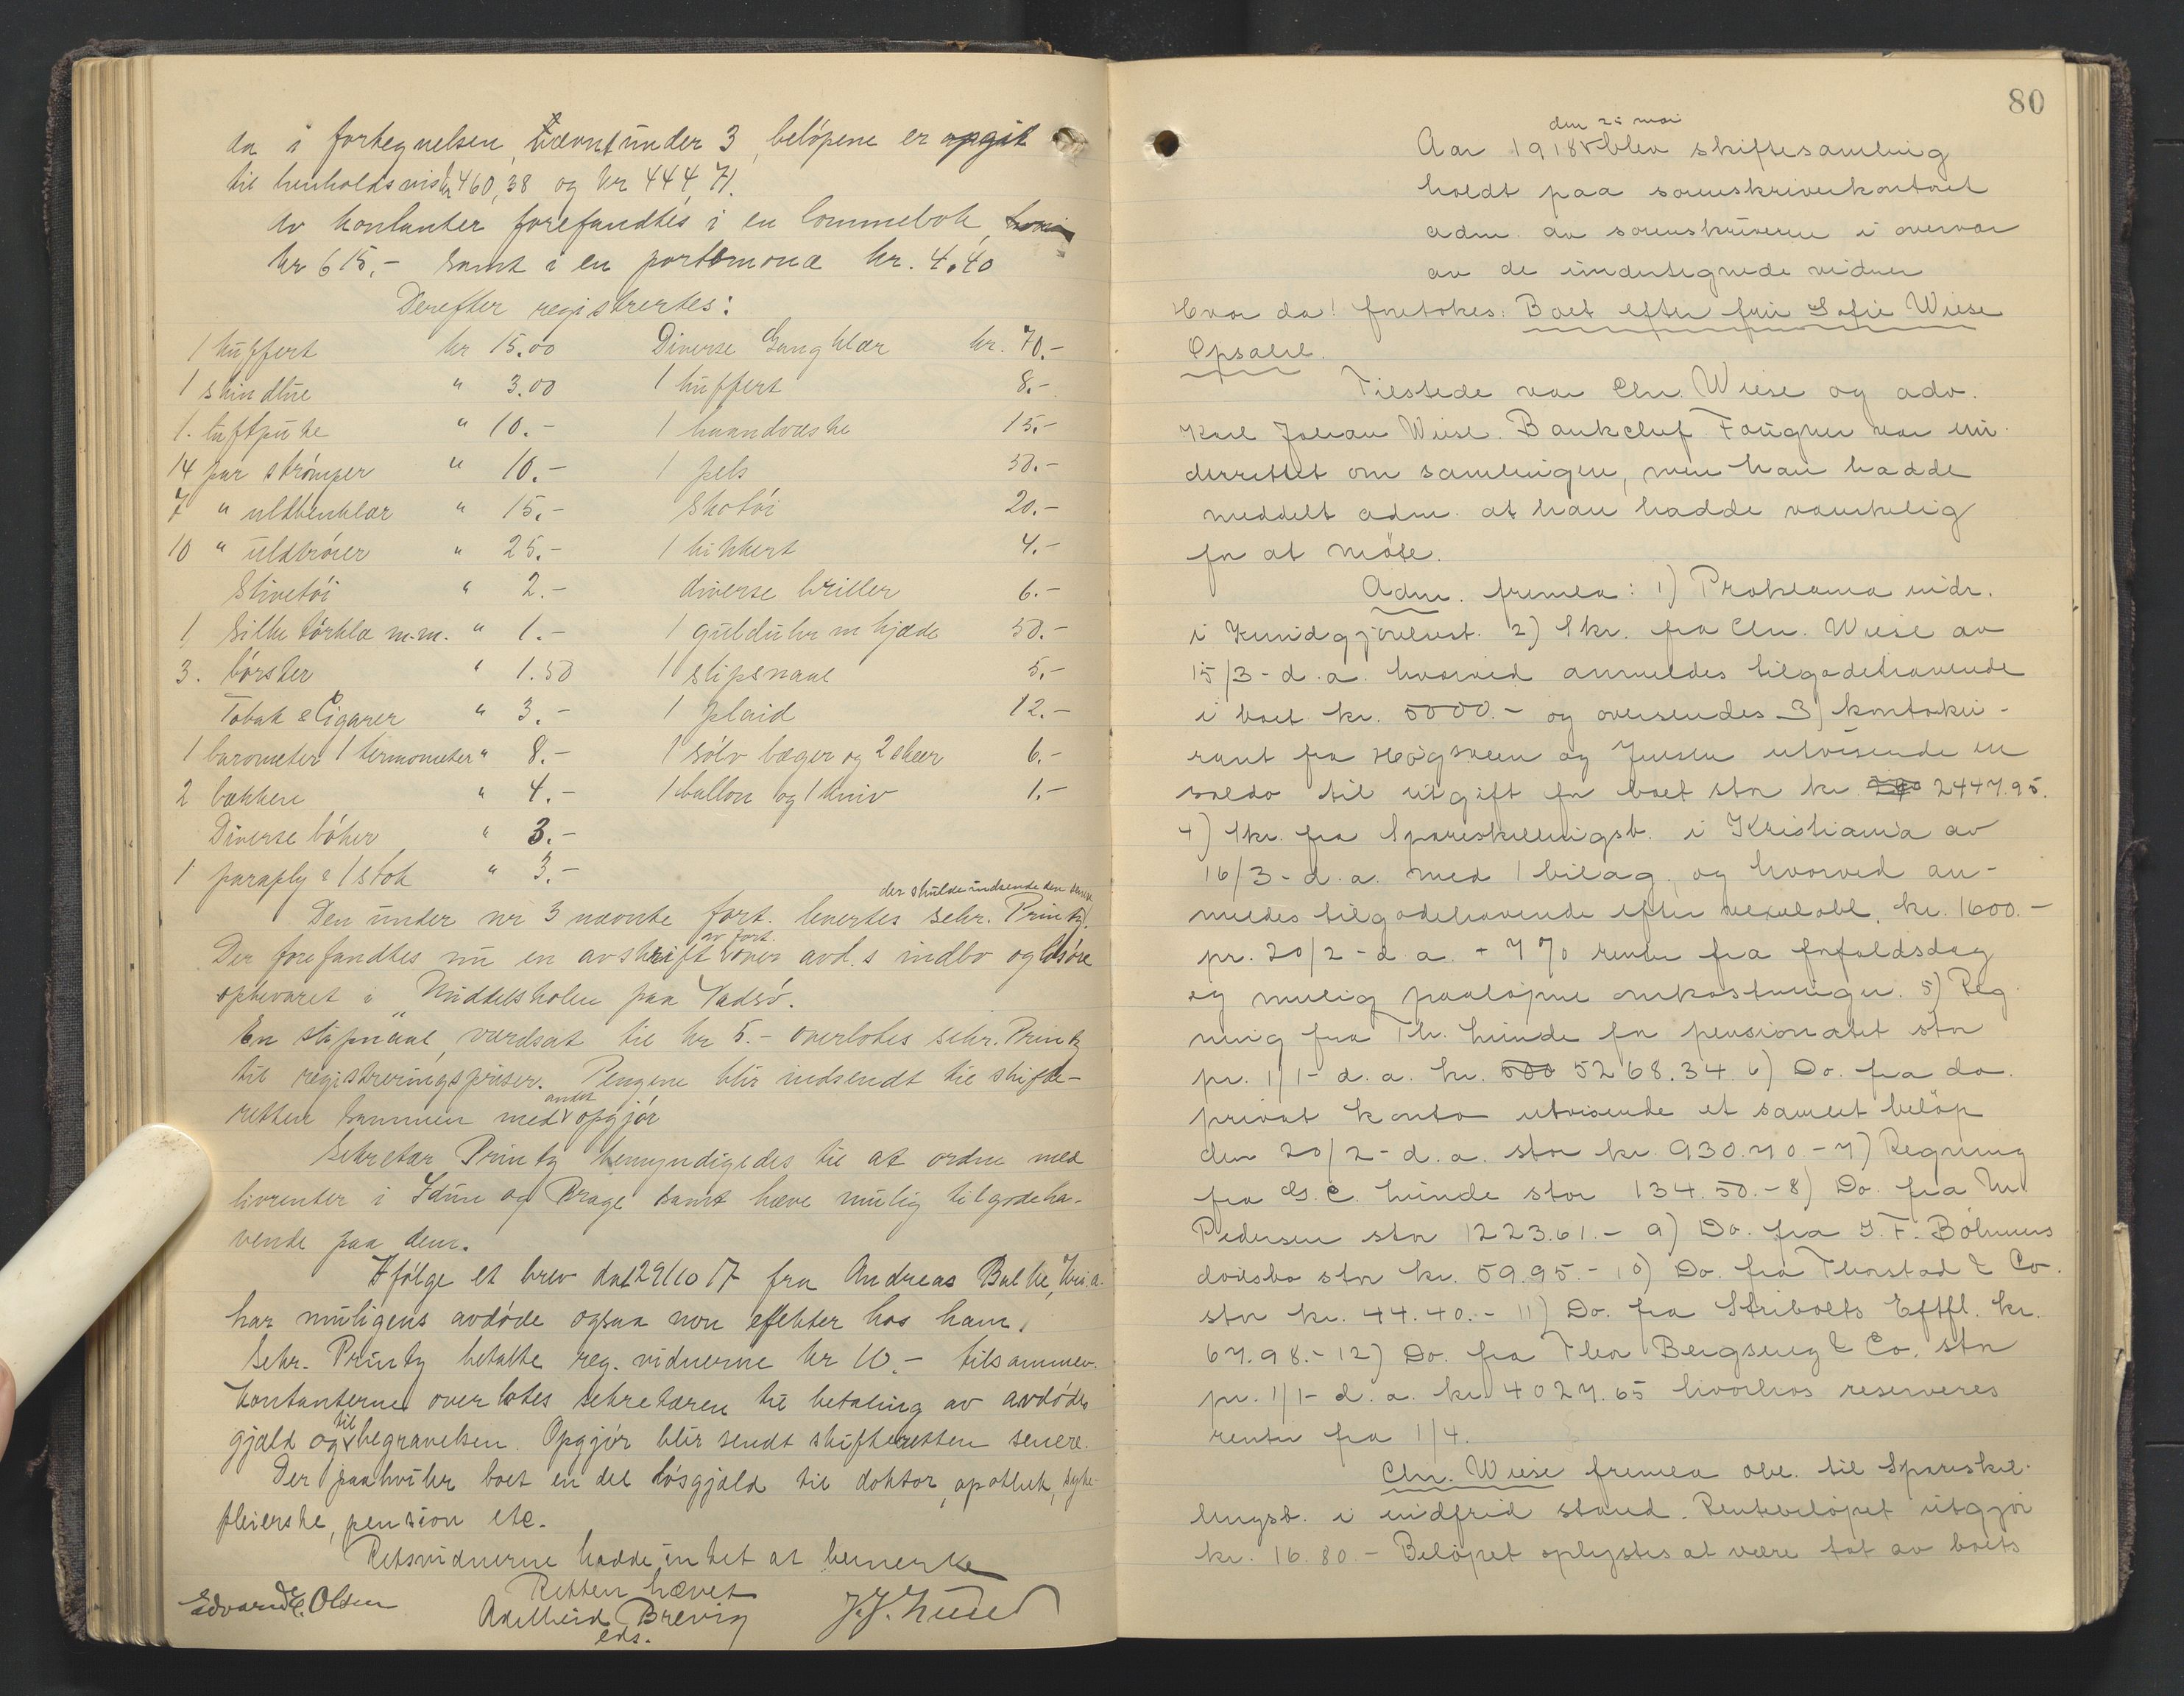 da i fortegnelsen, nævnt under 3, beløpene er opgit
til henholdsvis kr 460,38 og kr 444,71.
Av kontanter forefandtes i en lommebok
kr 615,- samt i en portemonæ kr. 4,40
Derefter registrertes:
1 kuffert kr 15.00 Diverse Gangklær kr. 70.-
1 skindlue " 3.00 1 kuffert 8.-
1. luftpute " 10.- 1 haandvæske 15.-
14 par strømper " 10.- 1 pels 50.-
7 " uldbenklær " 15.- Skotøi 20.-
10 " uldtrøier " 25.- 1 kikkert 4.-
Stivetøi " 2.- diverse briller 6.-
1 Silketørklæ m.m. " 1.- 1 gulduhr m kjæde 50.-
3. børster " 1.50 1 slipsnaal 5.-
Tobak & Cigarer " 3.- 1 plaid 12.-
1 barometer 1 termometer " 8.- 1 sølv bæger og 2 skeer 6.-
2 bækken " 4.- 1 ballon og 1 kniv 1.-
Diverse bøker " 3.-
1 paraply & 1 stok " 3.-
der skulde indsende den senere
Den under nr 3 nævnte fort. levertes sekr. Printz.
av fort.
Der forefandtes nu en avskrift over avd.s indbo og løsøre
opbevaret i "Middelskolen paa Vadsø.
En slipsnaal, værdsat til kr 5.- overlotes sekr. Printz
til registreringspriser. Pengene blir indsendt til skifte-
retten sammen med andet opgjør
Sekretær Printz bemyndigedes til at ordne med
livrenter i Idun og Brage samt hæve mulig tilgodeha-
vende paa dem.
Ifølge et brev dat 29/10 17 fra Andreas Balke, Kr.a
har muligens avdøde ogsaa noen effekter hos ham.
Sekr. Printz betalte reg. vidnerne kr 10.- tilsammen.
Kontanterne overlotes sekretæren til betaling av avdødes
gjæld og til begravelsen. Opgjør blir sendt skifteretten senere.
Der paahviler boet en del løsgjæld til doktor, apothek, syke-
pleierske, pension etc.
Retsvidnerne hadde intet at bemerke
Retten hævet
Edvard E. Olsen Adelheid Brevig J.J. Lund
eds.
80
den 25 mai
Aar 1918 blev skiftesamling
holdt paa sorenskriverkontoret
adm. av sorenskriveren i overvær
av de undertegnede vidner
Hvor da! foretokes: Boet efter fru Sofie Wiese
Opsahl.
Tilstede var Chr. Wiese og adv.
Karl Johan Wiese. Bankchef Fougner var un-
derrettet om samlingen, men han hadde
meddelt adm. at han hadde vanskelig
for at møte.
Adm. fremla: 1) Proklama indr.
i Kundgjørelsest. 2) Skr. fra Chr. Wiese av
15/3- d.a. hvorved anmeldes tilgodehavende
i boet kr. 5000.- og oversendes 3) kontoku-
rant fra Høgsveen og Juulsen utvisende en
saldo til utgift for boet stor kr. 2447.95.
4) Skr. fra Spareskillingsb. i Kristiania av
16/3- d.a. med 1 bilag, og hvorved an-
meldes tilgodehavende efter vexelobl. kr. 1600.-
pr. 20/2- d.a. + 7 % renter fra forfaldsdag
og mulig paaløpne omkostninger. 5) Reg-
ning fra Th. Lunde for pensionatet stor
pr. 1/1- d.a. kr. 5268.34 6) Do. fra do.
privat konto utvisende et samlet beløp
den 20/2- d.a. stor kr. 930.70 - 7) Regning
fra G. C. Lunde stor 134.50.- 8) Do. fra M.
Pedersen stor 1223.61.- 9) Do. fra J. F. Böhmers
dødsbo stor kr. 59.95.- 10) Do. fra Thorstad & Co.
stor kr. 44.40.- 11) Do. fra Stribolts Eftfl. kr.
67.98.- 12) Do. fra Thor Bergseng & Co. stor
pr. 1/1- d.a. kr. 4027.65 hvorhos reserveres
renter fra 1/4.
Chr. Wiese fremla obl. til Spareskil-
lingsb. i indfrid stand. Rentebeløpet utgjør
kr. 16.80.- Beløpet oplystes at være tat av boets